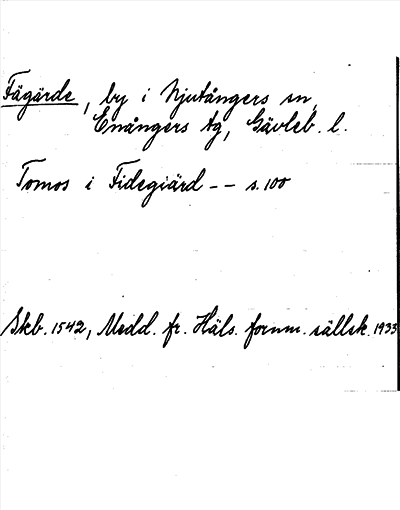 Fägärde, by i Njutångers sn,
Enångers tg, Gävleb. l.
Tomos i Fidegiärd -- s. 100
Skb. 1542, Medd. fr. Häls. fornm. sällsk. 1933